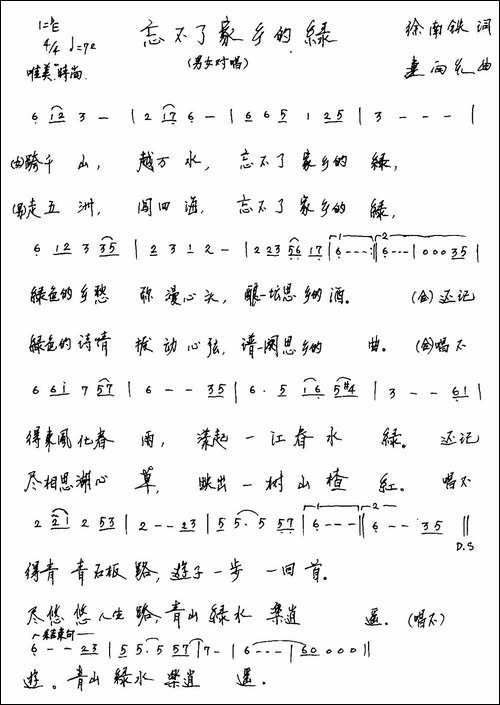 1=♭E
忘不了家乡的綠
徐南铁 词
4/4 ♩=72
(男女对唱)
曲
唯美.时尚.
6 12 3 – | 2 17 6 – | 6 6 5 1 25 | 3 - - - |
(女)跨千 山, 越万 水, 忘不了 家乡的 綠,
(男)走五 洲, 闯四 海, 忘不了 家乡的 綠,
6 12 3 35 | 2 3 1 2 – | 2 23 56 17 | 6 - - - :‖ 6 - - - | 0 0 0 35 |
綠色的乡愁 弥漫心头, 酿一坛思乡的酒。 (合)还记
綠色的诗情 拨动心弦, 谱一阕思乡的 曲。 (合)唱不
6 61 7 57 | 6 - - 35 | 6. 5 16 5#4 | 3 - - 61 |
得東風化春 雨, 漾起 一江春水 綠。 还记
尽相思湖心 草, 映出 一树山楂 红。 唱不
2 21 2 53 | 2 - - 23 | 5 5. 5 57 | 6 - - - :‖ 6 - - 35 ‖
D.S
得青 青石板 路, 遊子一步 一回首。
尽悠 悠人生 路, 青山綠水 樂逍 遥. (唱不)
结束句
6 - - 23 | 5 5. 5 57 | 7 - | 6 - - - | 60 0 0 0 ‖
遊。青山 綠水 樂逍 遥.